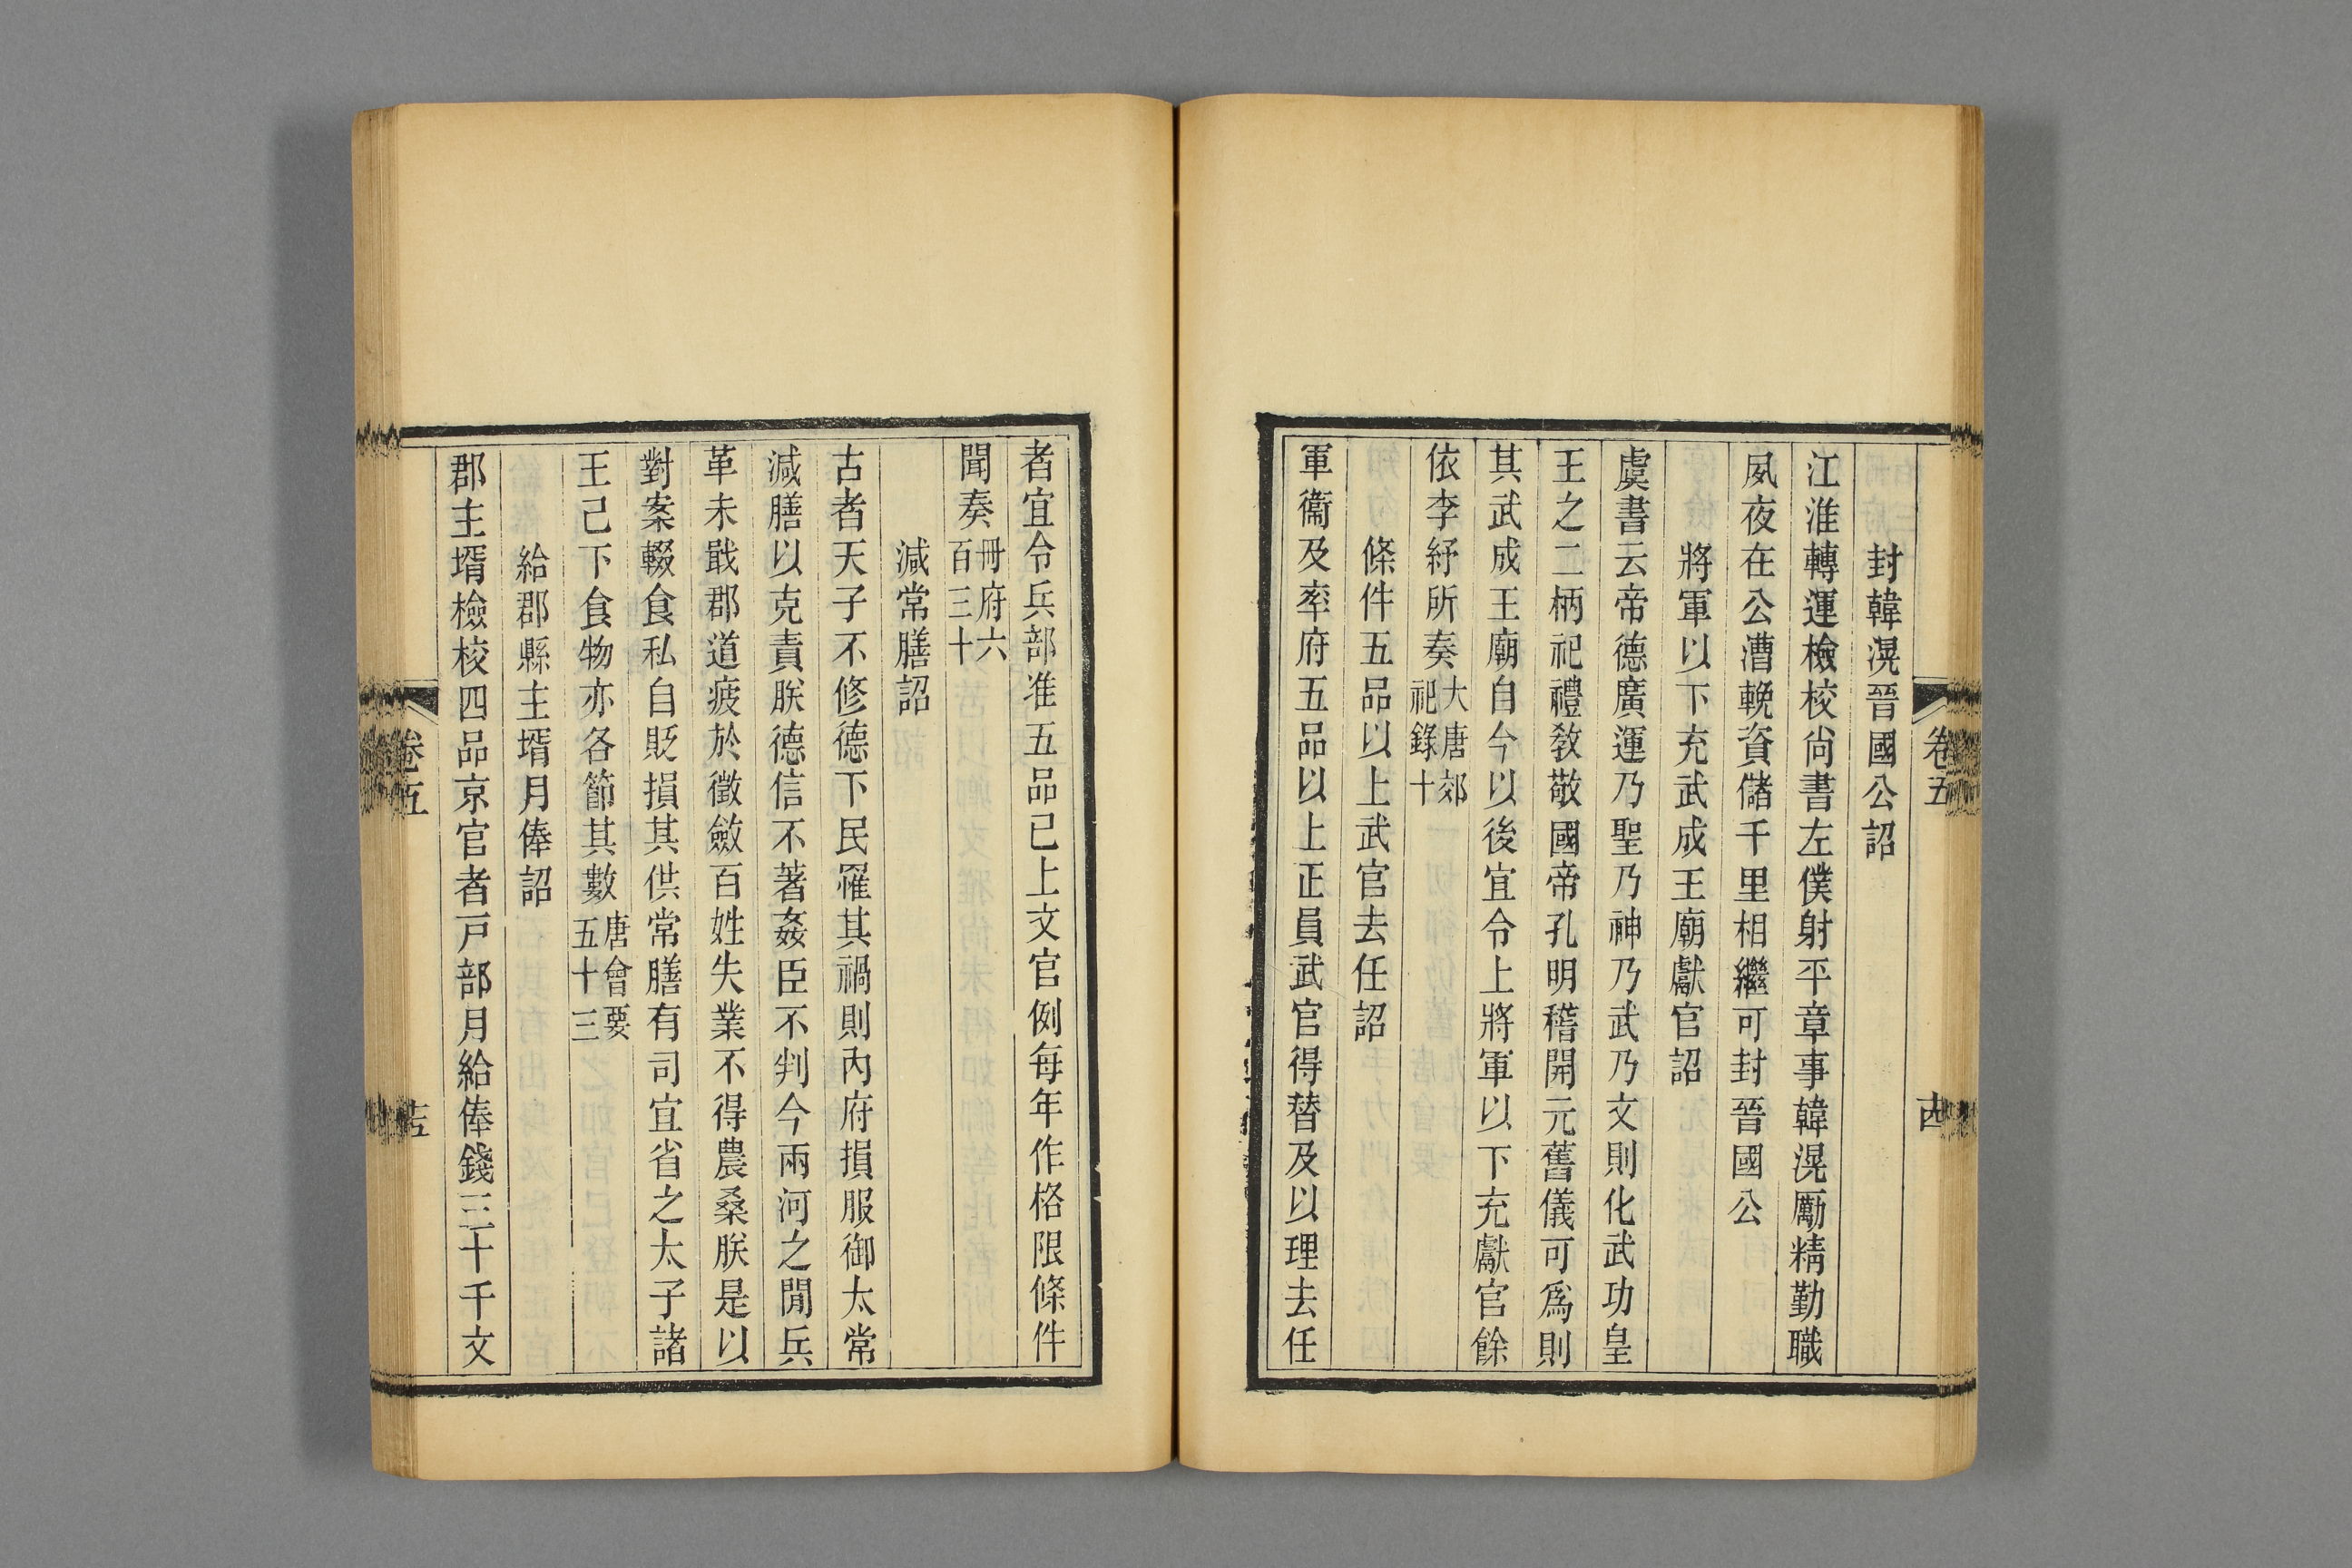 封韓滉晉國公詔
江淮轉運檢校尙書左僕射平章事韓滉勵精勤職
夙夜在公漕輓資儲千里相繼可封晉國公
將軍以下充武成王廟獻官詔
虞書云帝德廣運乃聖乃神乃武乃文則化武功皇
王之二柄祀禮敎敬國帝孔明稽開元舊儀可爲則
其武成王廟自今以後宜令上將軍以下充獻官餘
依李紓所奏大唐郊祀錄十
條件五品以上武官去任詔
軍衞及率府五品以上正員武官得替及以理去任
卷五
十四
者宜令兵部准五品已上文官例每年作格限條件
聞奏冊府六百三十
減常膳詔
古者天子不修德下民罹其禍則內府損服御太常
減膳以克責朕德信不著姦臣不判今兩河之閒兵
革未戢郡道疲於徵斂百姓失業不得農桑朕是以
對案輟食私自貶損其供常膳有司宜省之太子諸
王己下食物亦各節其數唐會要五十三
給郡縣主壻月俸詔
郡主壻檢校四品京官者戸部月給俸錢三十千文
卷五